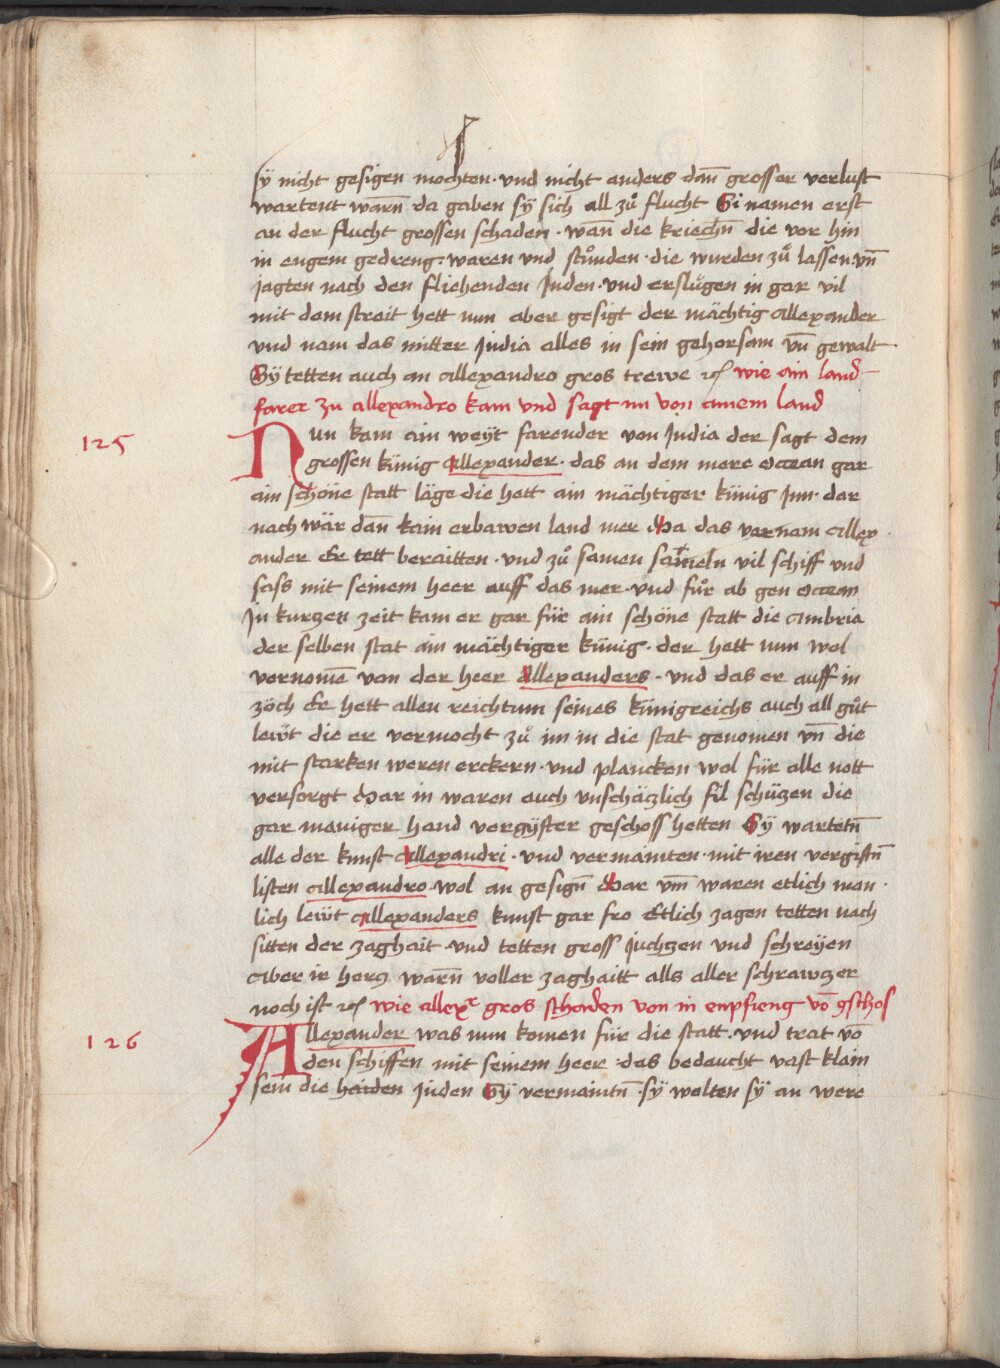 sÿ nicht gesigen mochten · und nicht anders dañ grosser verlust
wartent warñ da gaben sÿ sich all zů flucht Si namen erst
an der flucht grossen schaden · wañ die kriechñ die vor hin
in engem gedreng · waren und stůnden · die wurden zů lassen · vñ
jagten nach den fliehenden Inden · und erslůgen in gar vil
mit dem streit hett nun aber gesigt der mächtig Allexander
und nam das mitter India alles in sein gehorsam vñ gewalt ·
Sÿ tetten auch an Allexandro gros trewe ꝛc wie ain land
farer zu allexandro kam und sagt im von ainem land
125
Nun kam ain weÿt farender von India der sagt dem
grossen künig Allexander · das an dem mere Occean gar
ain schöne statt läge die hett ain mächtiger künig Inn · dar
nach wär dañ kain erbawen land mer Da das vernam Allex
ander Er tett beraitten · und zů samen sam̄eln vil schiff und
sass mit seinem heer auff das mer · und fůr ab gen Occean
In kurtzen zeit kam er gar für ain schöne statt die Ambria
der selben stat ain mächtiger künig · der hett nun wol
vernomē von der heer Allexanders · und das er auff in
zöch Er hett allen reichtum seines künigreichs auch all gůt
lewt die er vermocht zů im in die stat genomen vñ die
mit starken weren erckern · und plancken wol für alle nott
versorgt Dar in waren auch unschäczlich fil schüzen die
gar maniger hand vergÿfter geschoss hetten Sÿ wartetñ
alle der kunst Allexandri · und vermainten · mit iren vergiftñ
listen Allexandro wol an gesigñ Dar vm̄ waren etlich man ·
lich lewt Allexanders kunst gar fro Etlich zagen tetten nach
sitten der zaghait und tetten gross Juchzen und schreÿen
Aber ir hercz warñ voller zaghaitt alls aller schrawczer
noch ist ꝛc wie allexr gros schaden von in enpfieng vō gschos
126
Allexander was nun komen für die statt · und trat vō
den schiffen mit seinem heer · das bedaucht vast klain
sein die haiden Inden Sÿ vermaintñ · sÿ wolten sÿ an were